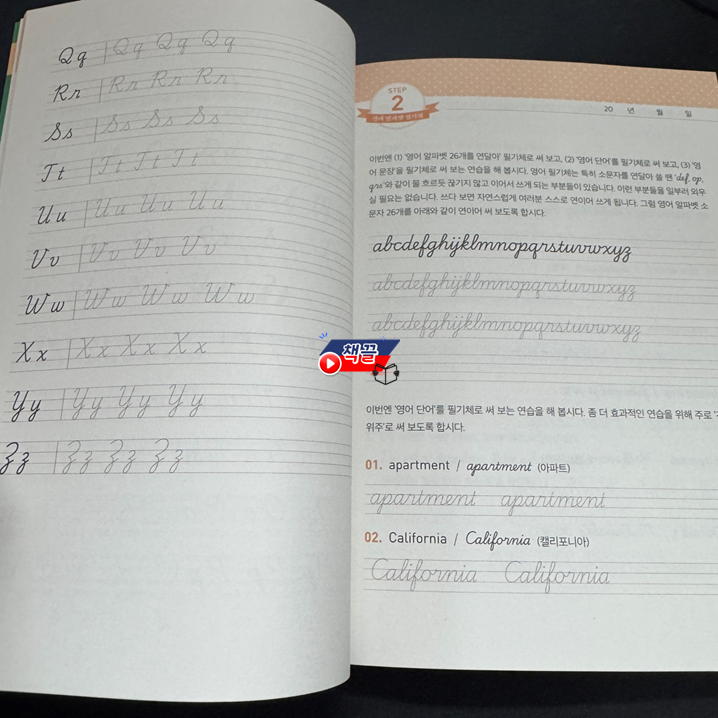 Qq Qq Qq Qq
Rr Rr Rr Rr
Ss Ss Ss Ss
Tt Tt Tt Tt
Uu Uu Uu Uu
Vv Vv Vv Vv
Ww Ww Ww Ww
Xx Xx Xx Xx
Yy Yy Yy Yy
Zz Zz Zz Zz
STEP
2
20 년 월 일
이번엔 (1) '영어 알파벳 26개를 연달아' 필기체로 써 보고, (2) '영어 단어'를 필기체로 써 보고, (3) '영
어 문장'을 필기체로 써 보는 연습을 해 봅시다. 영어 필기체는 특히 소문자를 연달아 쓸 땐 'def, op,
qrs'와 같이 물 흐르듯 끊기지 않고 이어서 쓰게 되는 부분들이 있습니다. 이런 부분들을 일부러 외우
실 필요는 없습니다. 쓰다 보면 자연스럽게 여러분 스스로 연이어 쓰게 됩니다. 그럼 영어 알파벳 소
문자 26개를 아래와 같이 연이어 써 보도록 합시다.
abcdefghijklmnopqrstuvwxyz
abcdefghijklmnopqrstuvwxyz
abcdefghijklmnopqrstuvwxyz
책끌
이번엔 '영어 단어'를 필기체로 써 보는 연습을 해 봅시다. 좀 더 효과적인 연습을 위해 주로
위주'로 써 보도록 합시다.
01. apartment / apartment (아파트)
apartment apartment
02. California / California (캘리포니아)
California California